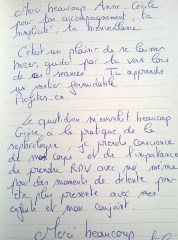 Merci beaucoup Anne-Cécile
pour ton accompagnement, ta
simplicité, ta bienveillance.
C'était un plaisir de se laisser
bercer, guider par ta voix lors
de ces séances. Tu apprends
un métier formidable
Profites-en
Le quotidien m'envahit beaucoup
Grâce à la pratique de la
sophrologie, je prends conscience
de mon corps et de l'importance
de prendre RDV avec moi même
pour des moments de détente pour
être plus présente avec mes
enfants et mon conjoint.
Merci beaucoup